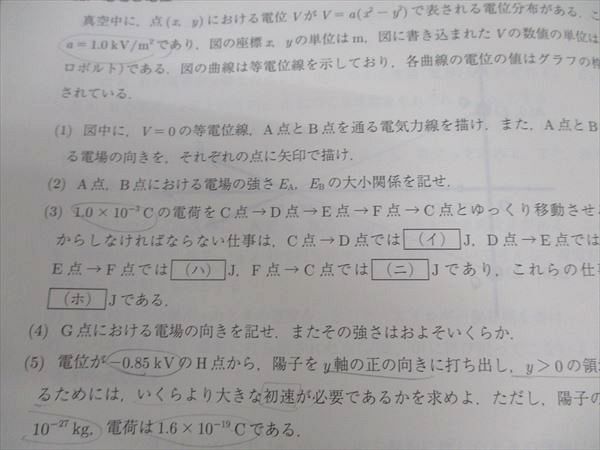 真空中に，点(x, y)における電位 V が V = a(x² − y²) で表される電位分布がある．こ
a = 1.0 kV/m² であり，図の座標 x, y の単位は m，図に書き込まれた V の数値の単位は
ロボルト)である．図の曲線は等電位線を示しており，各曲線の電位の値はグラフの枠
されている．
(1) 図中に，V = 0 の等電位線，A点とB点を通る電気力線を描け．また，A点とB
る電場の向きを，それぞれの点に矢印で描け．
(2) A点，B点における電場の強さ EA, EB の大小関係を記せ．
(3) 1.0 × 10⁻³ C の電荷をC点→D点→E点→F点→C点とゆっくり移動させ
からしなければならない仕事は，C点→D点では (イ) J，D点→E点では
E点→F点では (ハ) J，F点→C点では (ニ) J であり，これらの仕事
(ホ) J である．
(4) G点における電場の向きを記せ．またその強さはおよそいくらか．
(5) 電位が −0.85 kV のH点から，陽子を y 軸の正の向きに打ち出し，y > 0 の領
るためには，いくらより大きな初速が必要であるかを求めよ．ただし，陽子の
10⁻²⁷ kg，電荷は 1.6 × 10⁻¹⁹ C である．